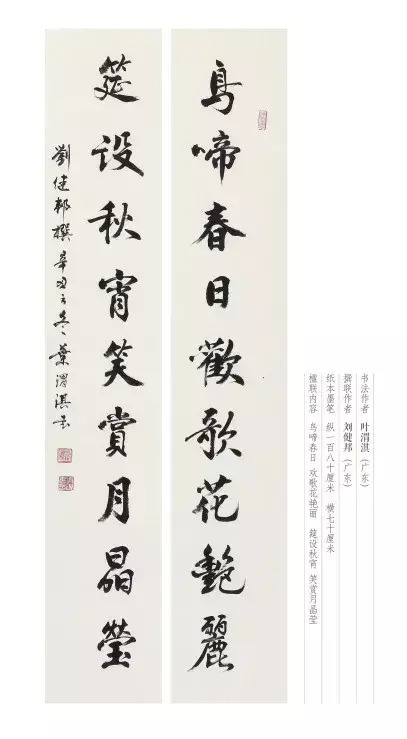 鳥啼春日歡歌花艷麗
筵设秋宵笑賞月晶瑩
劉健邦撰辛丑之冬葉渭淇書
书法作者 叶渭淇（广东）
撰联作者 刘健邦（广东）
纸本墨笔 纵一百八十厘米 横七十厘米
楹联内容 鸟啼春日 欢歌花艳丽 筵设秋宵 笑赏月晶莹